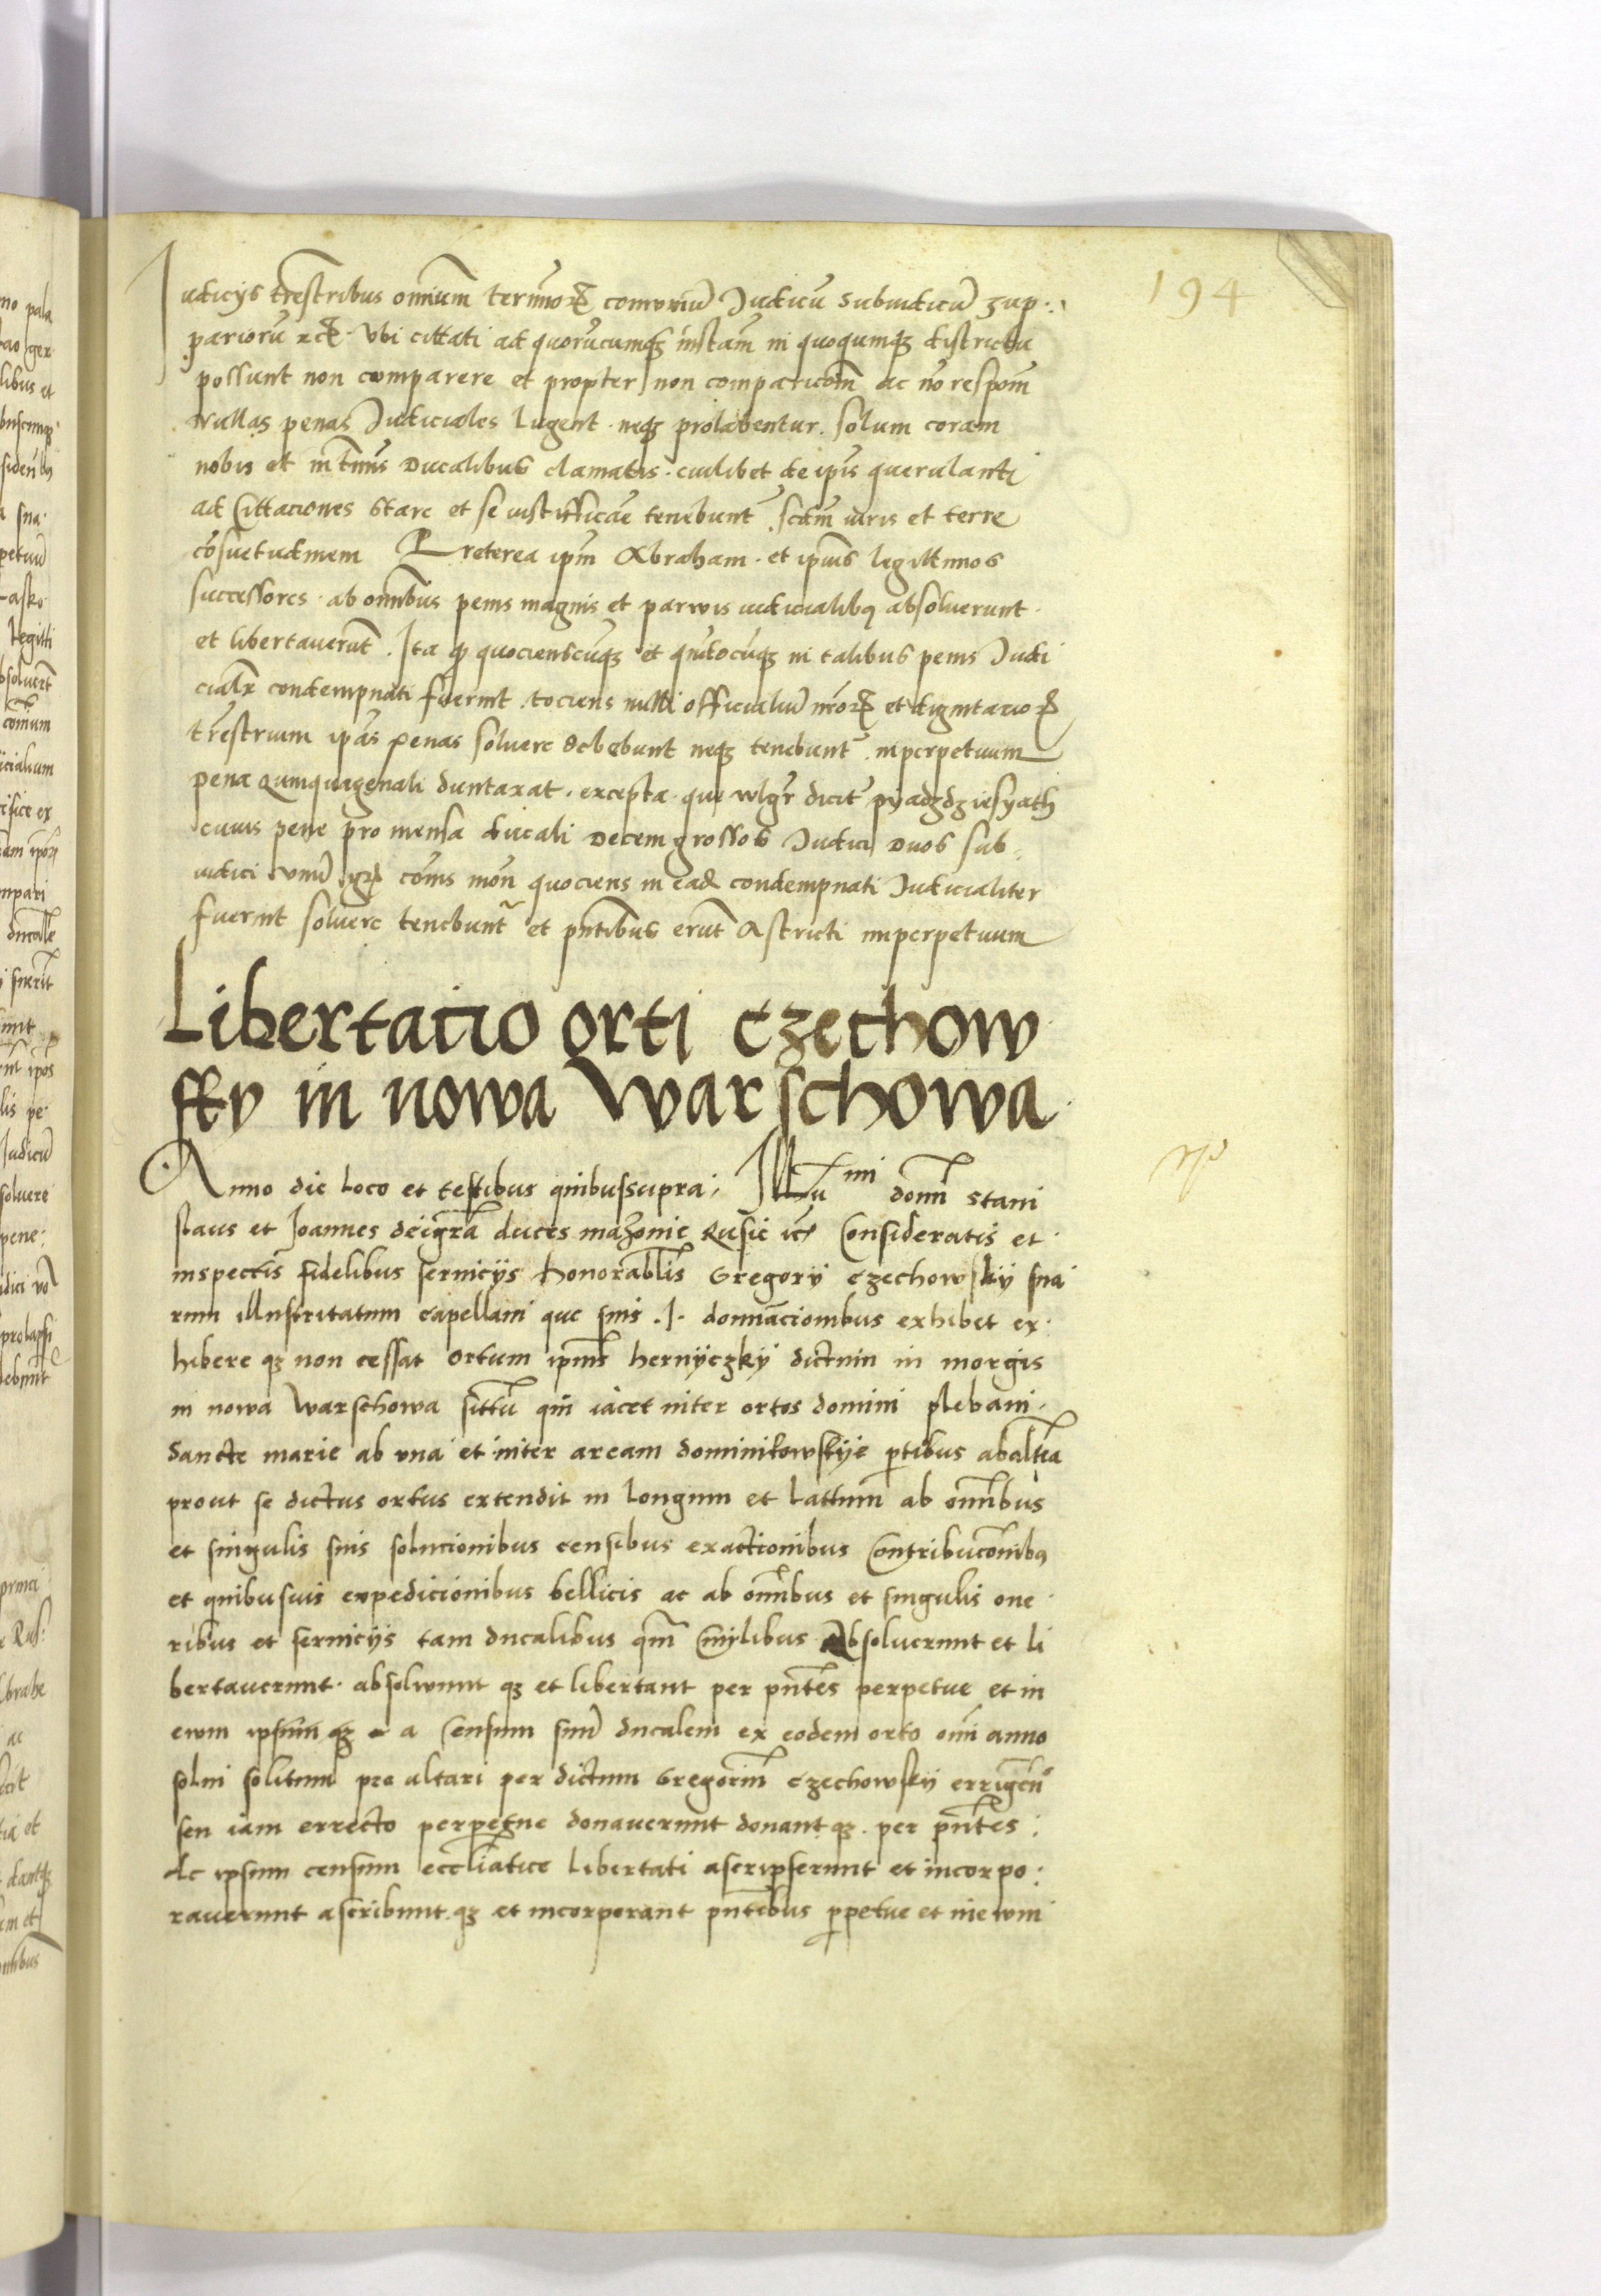 194
Iudicijs trestribus omnium termino℟ comuniũ Iudicũ subiudicũ zup
pariorũ rc℟. Vbi cittati ad quorũcumqʒ instam̃ in quoqumqʒ districtu
possunt non comparere et propter non comparicõm ac nõ respom̃
Nullas penas Iudiciales lugent neqʒ prolabentur. solum coram
nobis et in tm̃is Ducalibus clamatis. cuilibet de ip̃is querulanti
ad Cittaciones stare et se iustifficãe tenebunt̃. scdm̃ iuris et terre
cõsuetudinem Preterea ip̃m Abraham. et ip̃ius legittimos
successores. ab om̃ibus penis magnis et parwis iudicialibꝫ absoluerunt.
et libertauerũt. Ita ꝙ quocienscũqʒ et qũdocũqʒ in talibus penis Iudi
cialr̃ condempnati fuerint. tociens nulli officialiũ nr̃o℟ et dignitario℟
tr̃estrium ip̃as penas soluere debebunt neqʒ tenebunt̃. inperpetuum
pena Qumquagenali duntaxat. excepta. que wlgr̃ dicit̃ pyadzdziesyath
cuius pene pro mensa ducali Decem grossos Iudici Duos sub
iudici vnũ gr̃ com̃is mõn quociens in ead̃ condempnati Iudicialiter
fuerint soluere tenebunt̃ et pñtibus erũt Astricti inperpetuum
Libertacio orti Czechow
sky in nowa Warschowa
Anno die loco et testibus quibussupra. Illu mi dom̃ Stani
slaus et Ioannes deigrã duces mazouie Rusie rc̃ Consideratis et
inspectis fidelibus seruicijs honorablis Gregorij Czechowskij sua
rum illustritatum capellani que suis .I. domiñacionibus exhibet ex
hibere qʒ non cessat Ortum ipius hernyczky dictum in morgis
in nowa Warschowa sittũ qui iacet inter ortos domini plebani
Sancte marie ab vna et inter aream dominikowskije ꝑtibus abaltĩa
prout se dictus ortus extendit in longum et lattum ab om̃ibus
et singulis suis solucionibus censibus exactionibus Contribucõnibꝫ
et quibusuis expedicionibus bellicis ac ab om̃ibus et singulis one
ribus et seruicijs tam ducalibus qm̃ Ciuilibus Absoluerunt et li
bertauerunt. absolwunt qʒ et libertant per pñtes perpetue et in
ewm ipsum qʒ a Censum suũ ducalem ex eodem orto om̃i anno
solui solitum pro altari per dictum Gregoriũ Czechowskij errigeñ
seu iam errecto perpetue donauerunt donant qʒ. per pñtes.
Ac ipsum censum eccliatice libertati ascripserunt et incorpo
rauerunt ascribunt qʒ et incorporant pñtibus ꝑpetue et inewm